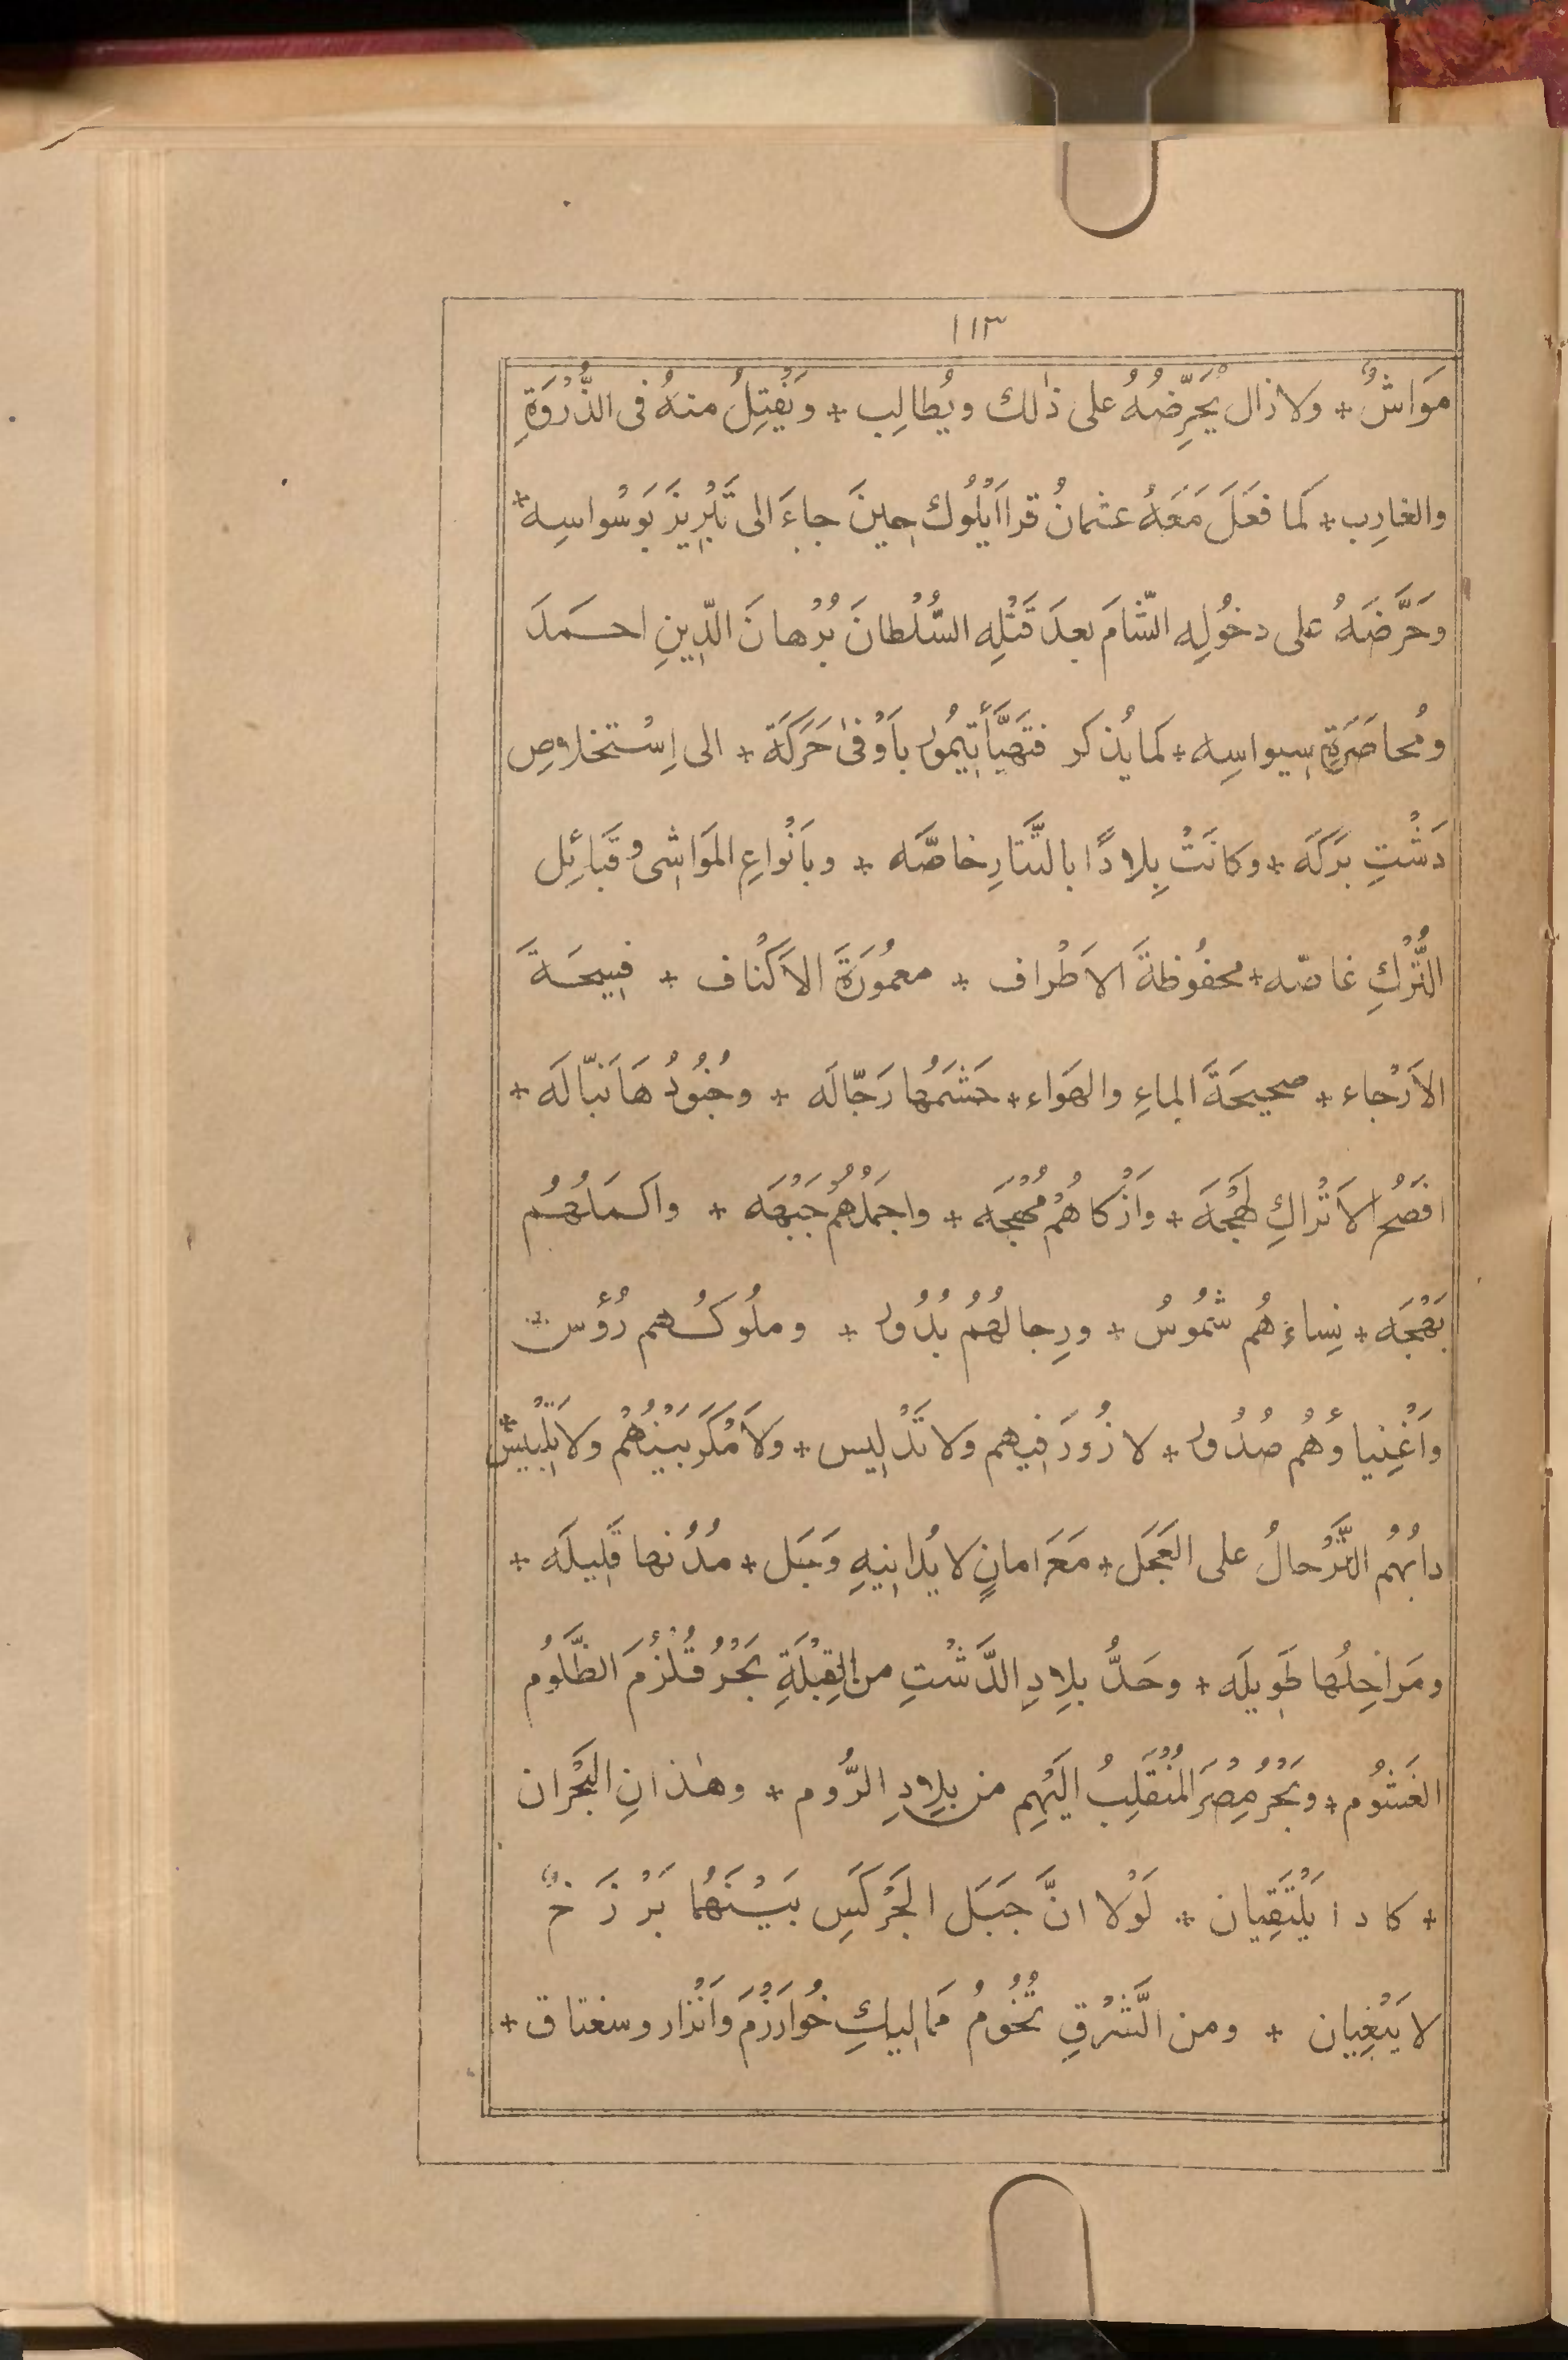 ١١٣
مَوَاشٌ + ولا زال يُحَرِّضُهُ على ذٰلك ويُطالِب + ويَفْتِلُ منهُ فى الذُّرْوَةِ
والغارِب + كَما فعَلَ مَعَهُ عثمانُ قرا اَيْلُوك حِينَ جاءَ الى تَبْرِيزَ بَوسْواسِه +
وحَرَّضَهُ على دخُولِه الشّامَ بعدَ قَتْلِه السُّلْطانَ بُرْهانَ الدِّينِ احمدَ
ومُحاصَرَةِ سِيواسِه + كما يُذكر فتَهَيَّأَ تِيمُور باَوْفىٰ حَرَكَة + الى اِسْتخلاصِ
دَشْتِ بَرَكَه + وكانَتْ بِلادًا بالتَّتارِ خاصَّه + وباَنْواعِ المَواشِى وقَبائِل
التُّرْكِ غاصّه + محفُوظةَ الاَطْراف + معمُورَةَ الاَكْناف + فسِيحَةَ
الاَرْجاء + صحيحَةَ الماءِ والهَواء + حَشَمُها رَجّالَه + وجُنُودُهَا نَبّالَه +
افصَحُ الاَتْراكِ لَهْجَة + وَاَزْكاهُمْ مُهْجَه + واجمَلُهُمْ جَبْهَه + واكمَلُهُم
بَهْجَه + نِساءُهُم شُمُوسٌ + ورِجالُهُمُ بُدُور + وملُوكُهم رُؤُس +
واَغْنِياؤُهُم صُدُور + لا زُورَ فِيهم ولا تَدْلِيس + ولَا مَكْرَ بَيْنَهُمْ ولا تَلْبِيس +
دابُهُم التَّرْحالُ على العَجَل + مَعَ امانٍ لا يُدانِيهِ وَجَل + مُدُنها قَلِيلَه +
ومَراحِلُها طَوِيلَه + وحَدُّ بلِادِ الدَّشْتِ من القِبْلَةِ بَحْرُ قُلْزُمَ الظَّلُوم
الغَشُوم + وبَحْرُ مِصْرَ المُنْقَلِبُ الَيْهِم من بلِادِ الرُّوم + وهٰذانِ البَحْران
+ كادا يَلْتَقِيان + لَوْلا انَّ جَبَل الجَرْكَسِ بَيْنَهُما بَرْزَخٌ
لا يَبْغِيان + ومن الشَّرْقِ تُخُومُ مَمَالِيكِ خُوارَزْمَ وَاَنْزار وسغناق +